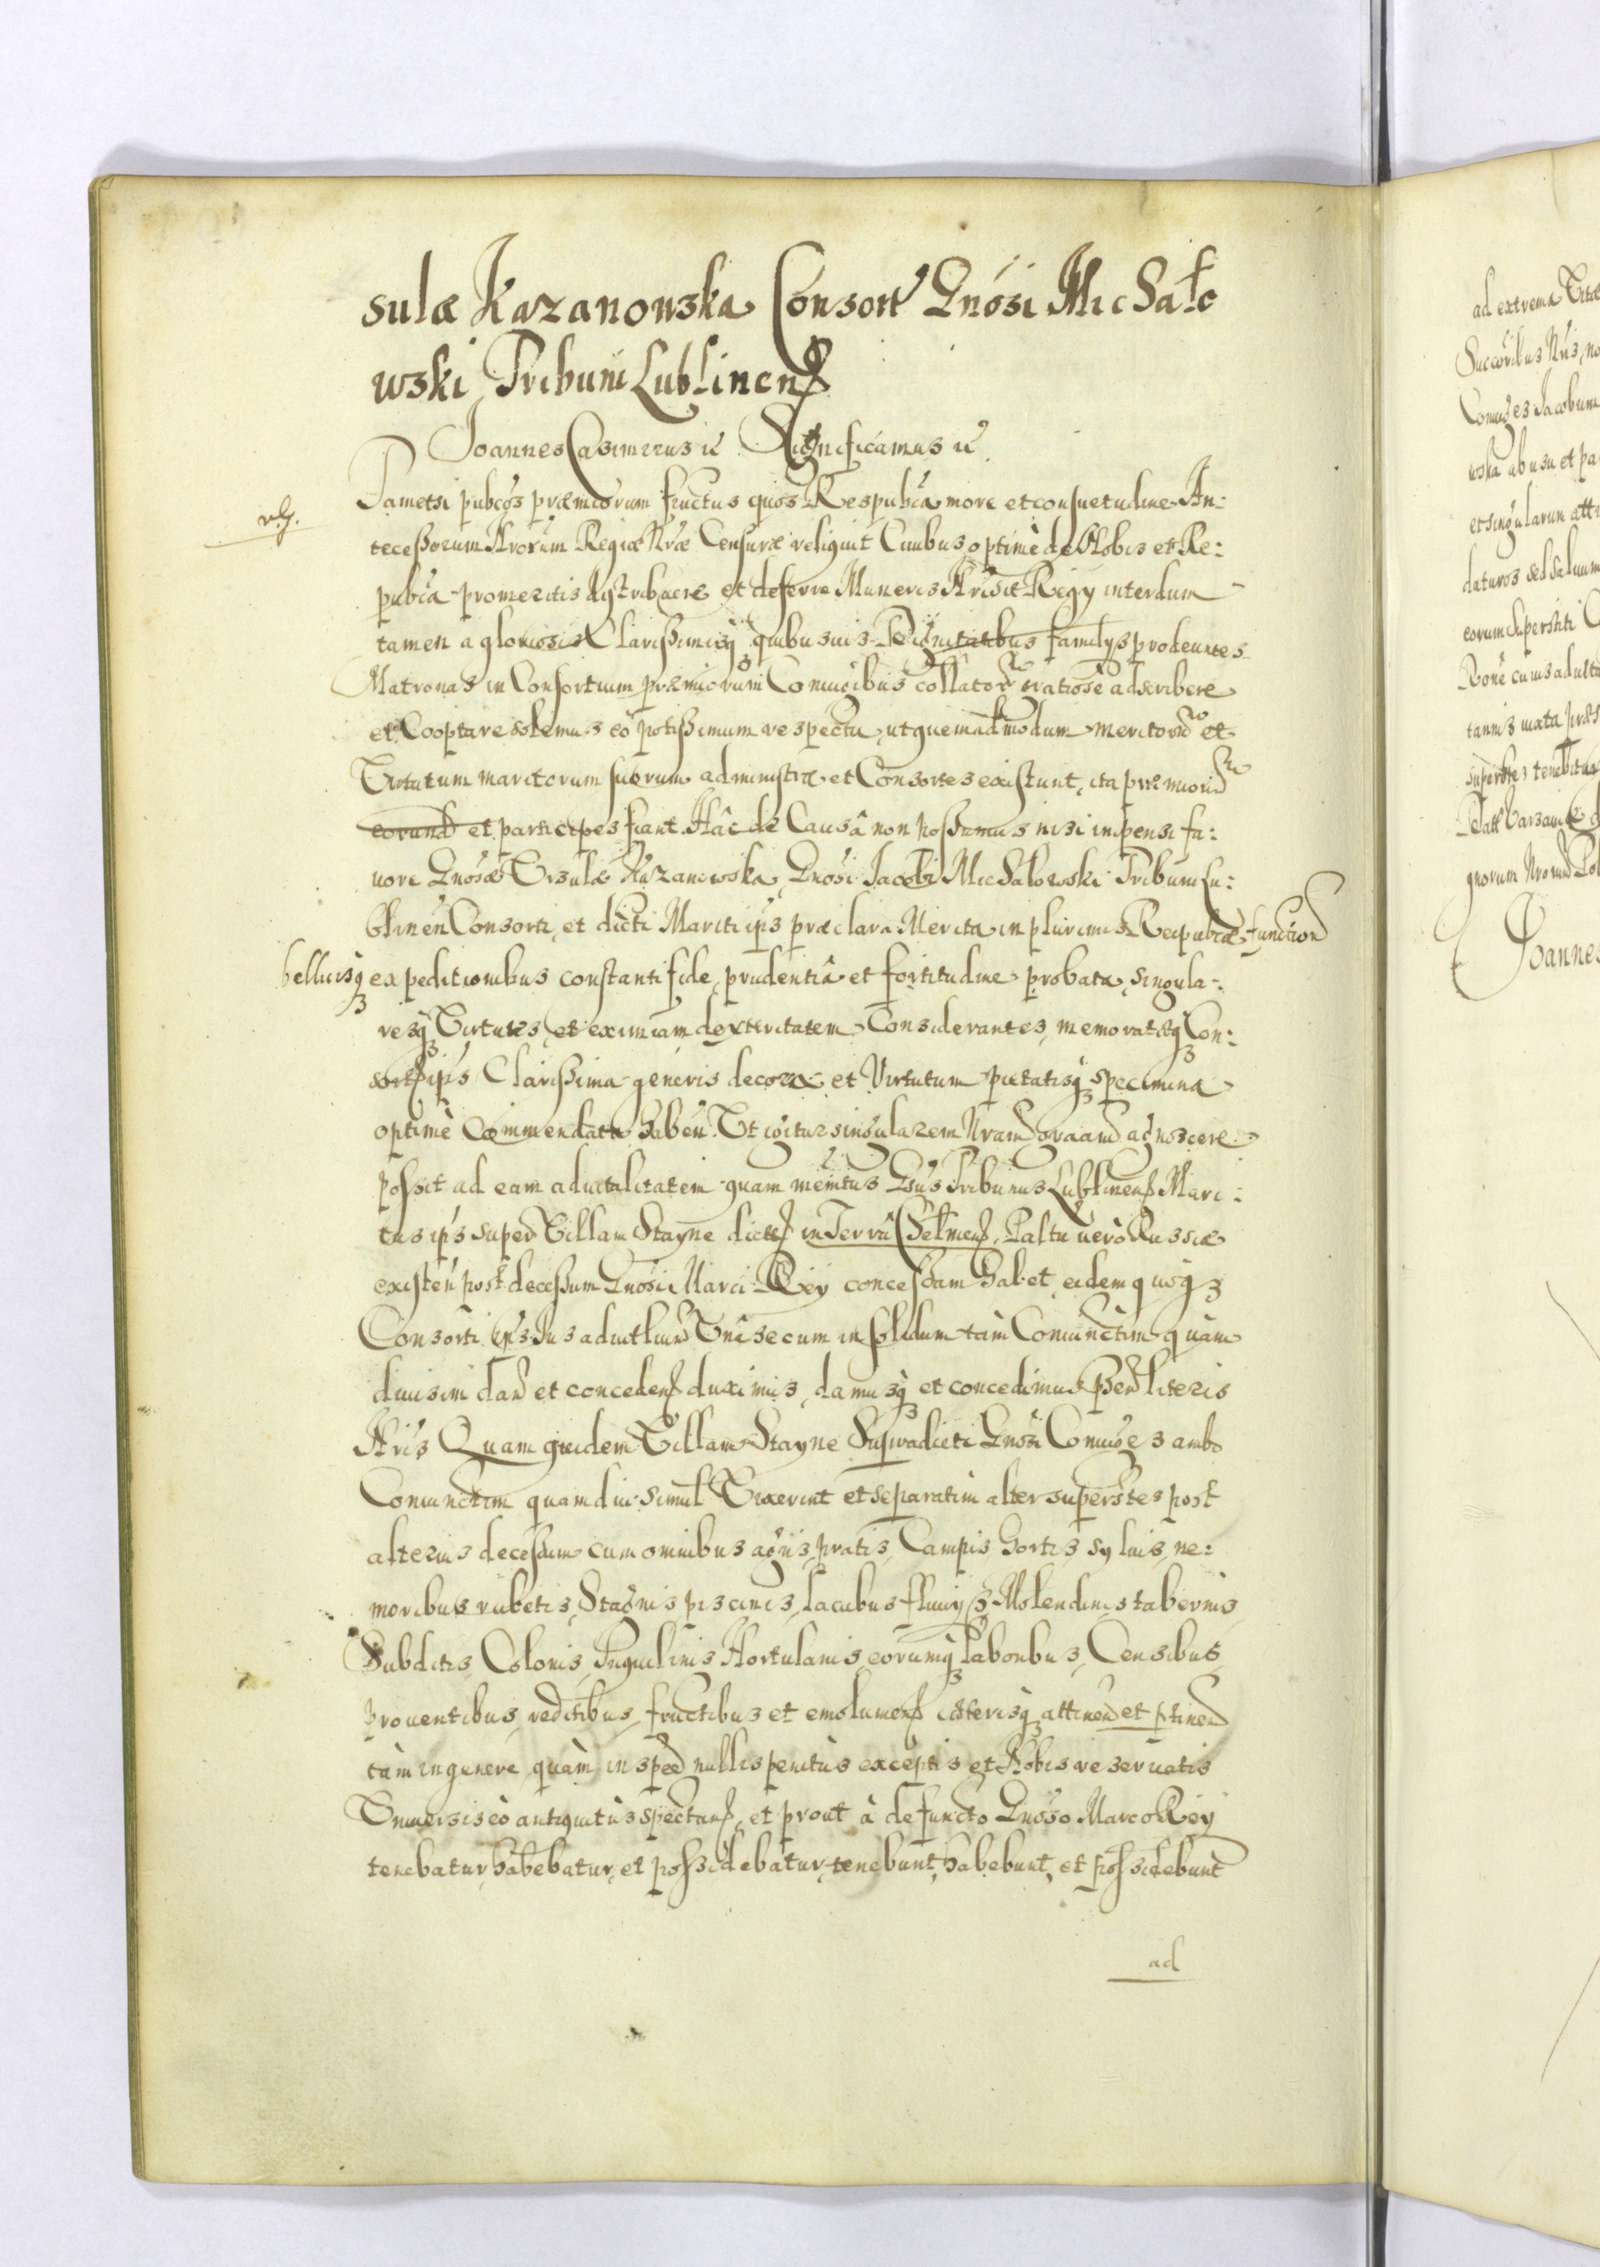 sulæ Kazanowska Consort Gnosi Michało
wski Tribuni Lublinens
Joannes Casimirus etc Significamus etc
Tametsi pubcos præmiorum fructus quos Respubca more et consuetudine An-
tecessorum Nrorum Regiæ Nræ Censuræ reliquit Ciuibus optimè de Nobis et Re:
pubca promeritis distribuere et deferre Muneris Nri sit Regy interdum
tamen a gloriosis Clarissimisq quibusuis Dignitatibus familys prodeuntes
Matronas in Consortium præmiorum Coniugibus collator gratiose adscribere
et Cooptare solemus eo potissimum respectu, ut quemadmodum meritor et
Virtutum maritorum suorum administræ et Consortes existunt, ita præmior
eorund et participes fiant. Hâc de Causâ non possumus nisi inpensi fa:
uore Gnosæ Vrsulæ Kazanowska, Gnosi Jacobi Michałowski Tribuni Lu:
blinen Consorti, et dicti Mariti ips præclara Merita in plurimis Reipubcæ function
bellicisq expeditionibus constanti fide, prudentiâ et fortitudine probata, singula-
resq Virtutes, et eximiam dexteritatem Considerantes, memoratæq Con:
sort ips Clarissima generis decora et Virtutum pietatisq specimina
optimè Commendata haben. Vt igitur singularem Nram graam agnoscere
possit ad eam aduitalitatem quam meritus Gnsus Tribunus Lublinens Mari:
tus ips super Villam Stayne dict in Terrâ Chelmens, Paltu uerò Russiæ
existen post decessum Gnosi Marci Rey concessam habet, eidem quoq
Consorti ips Jus aduitluu Vnà secum in solidum tàm Coniunctim quàm
diuisim dan et conceden duximus, damusq et concedimus Psen literis
Nris Quam quidem Villam Stayne Supradicti Gnosi Coniuges ambo
Coniunctim quamdiu simul Vixerint et separatim alter superstes post
alterius decessum cum omnibus agris, pratis, Campis hortis syluis, ne:
moribus rubetis, Stagnis piscinis, lacubus fluuys, Molendinis tabernis
Subditis, Colonis, Inquilinis Hortulanis, eorumq laboribus, Censibus,
prouentibus, reditibus, fructibus et emolumen cæterisq attinen et ptinen
tàm in genere quàm in spee nullis penitùs exceptis et Nobis reseruatis
Vniuersis eò antiquitùs spectan, et prout à defuncto Gnoso Marco Rey
tenebatur, habebatur, et possidebatur, tenebunt, habebunt, et possidebunt
ad
ad extrema Vitæ
Succoribus Nris, no
Coniuges Jacobum
wska abusu et pa
et singularum atti
daturos sed saluum
eorum Superstiti
Rone cuius aduita
tannis iuxta præs
superstes tenebitur
Datt Varsauiæ d
gnorum Nrorum Pol
Joannes